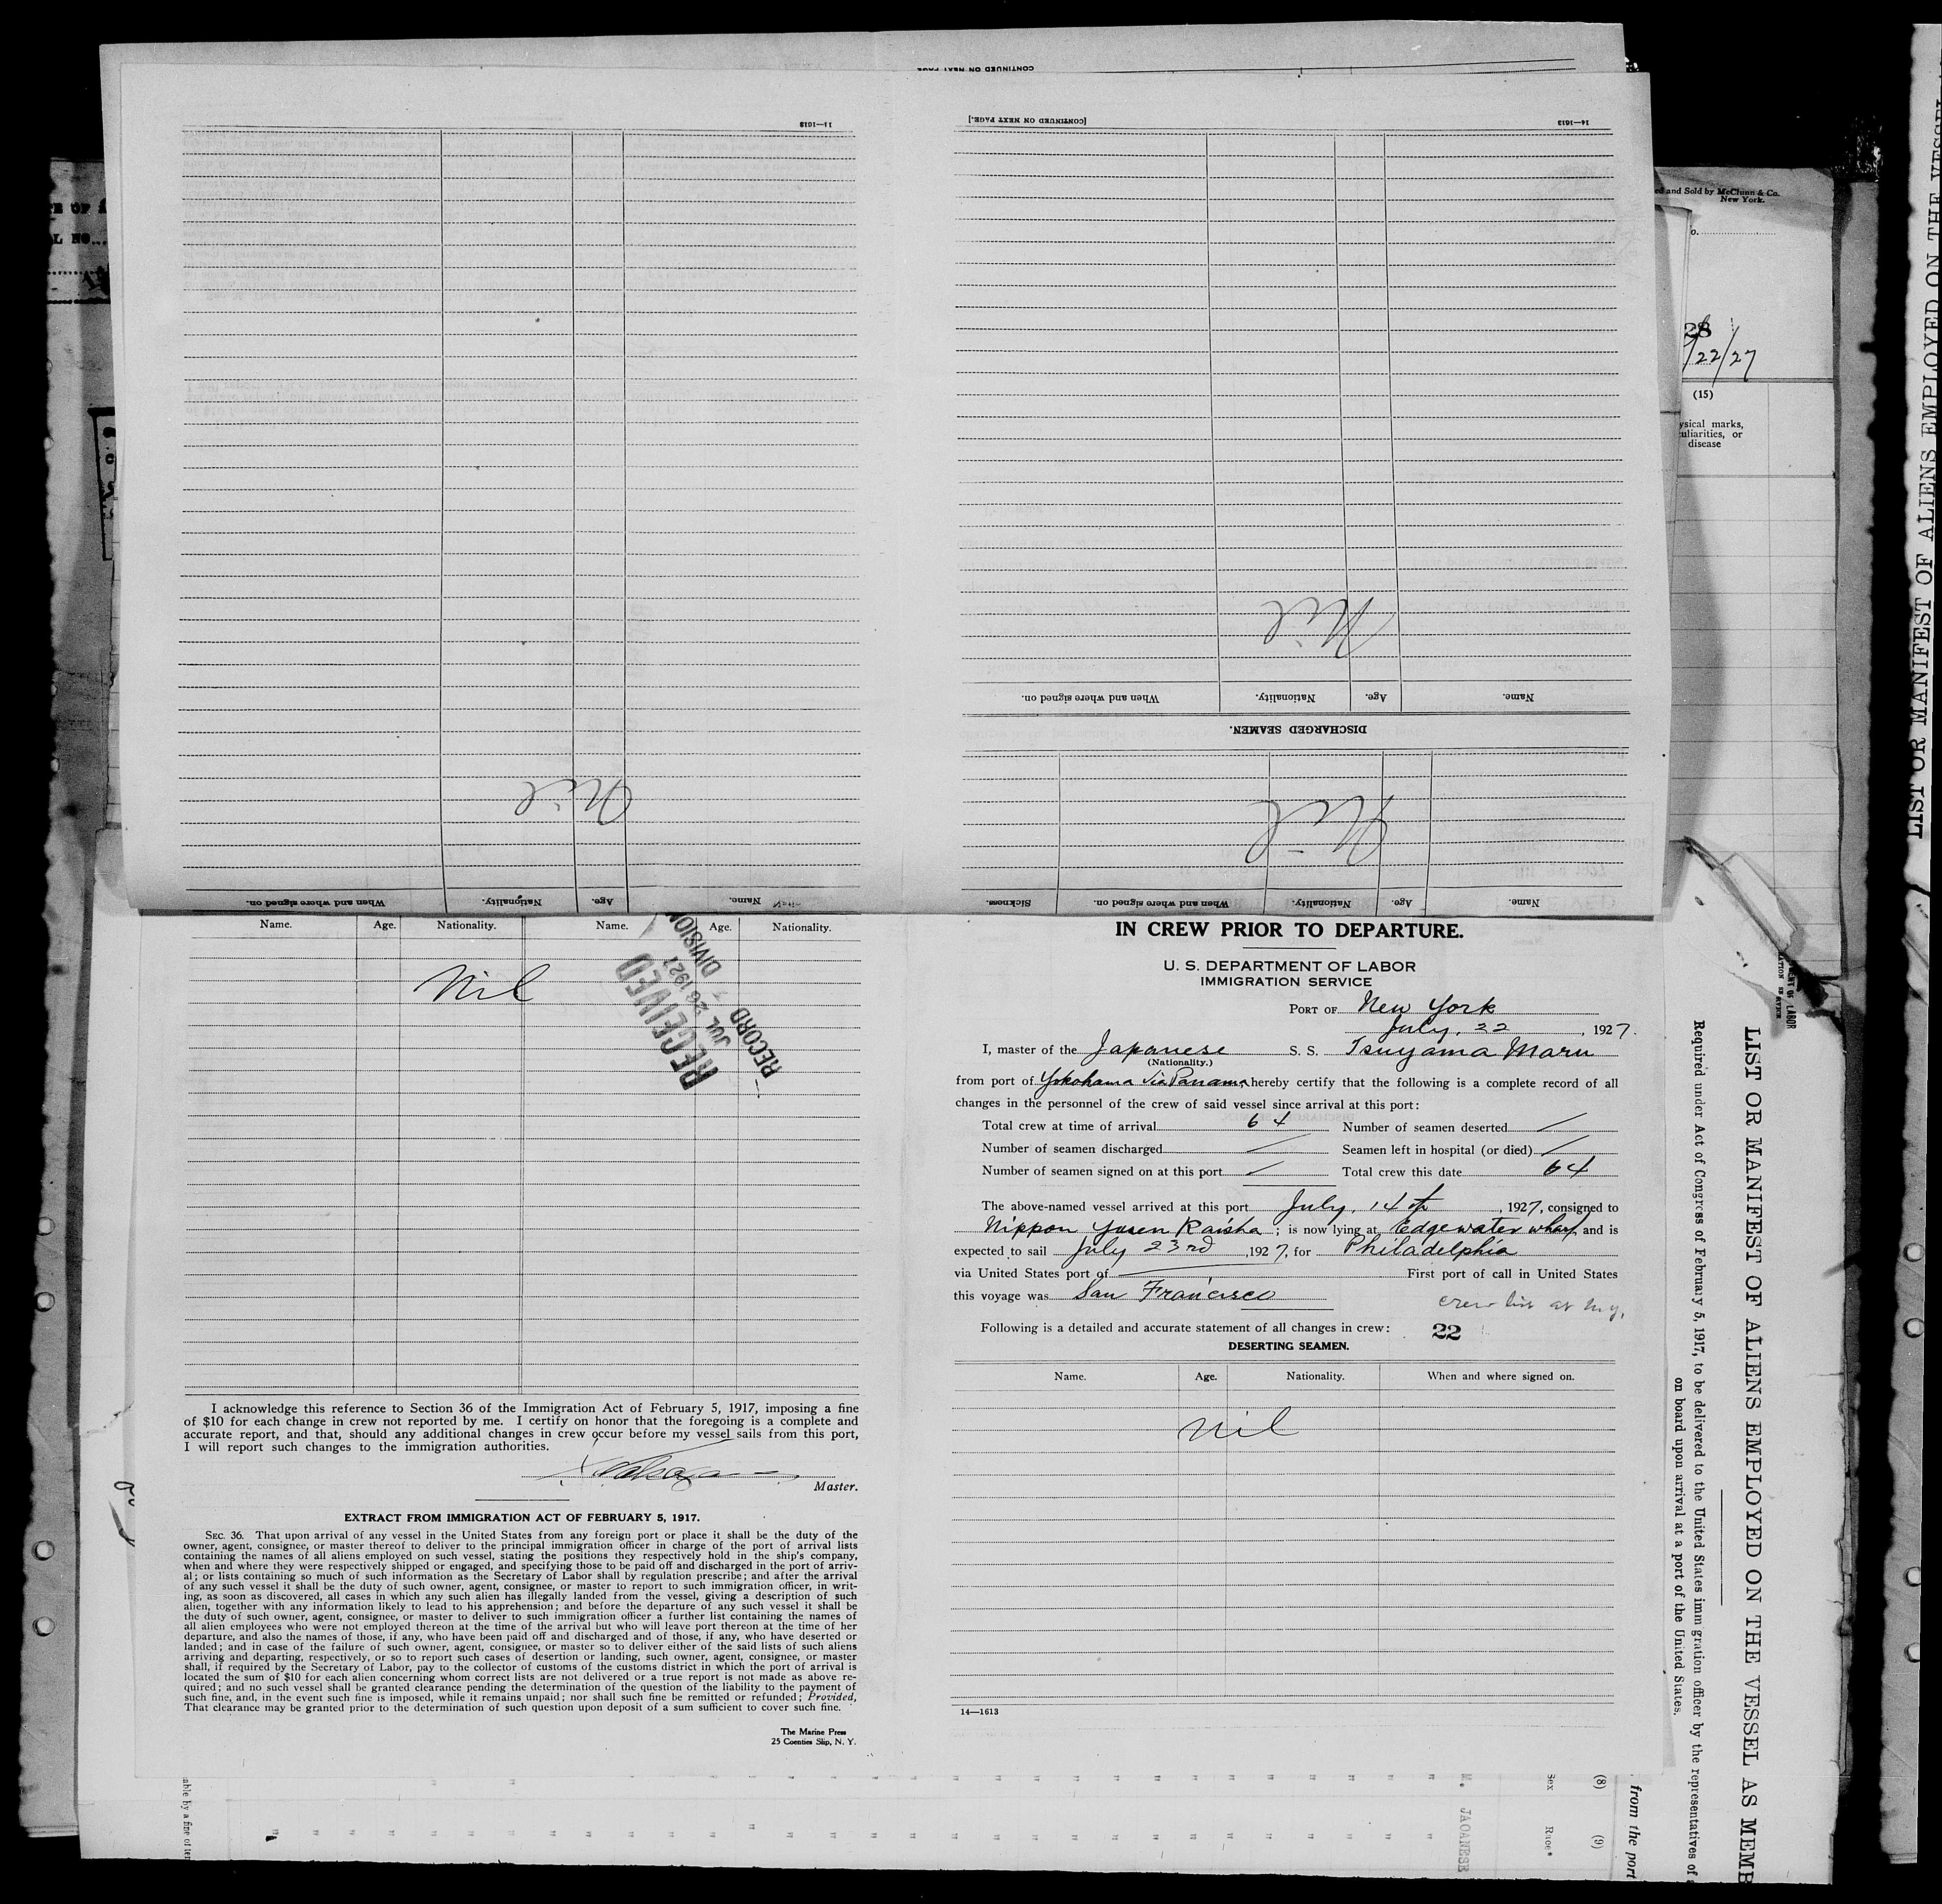 CONTINUED ON NEXT PAGE
11—1613
Nil
Name.
Age.
Nationality.
When and where signed on.
[CONTINUED ON NEXT PAGE.]
14—1613
Nil
Name. Age. Nationality. When and where signed on.
DISCHARGED SEAMEN.
Nil
Name. Age. Nationality. When and where signed on. Sickness.
Name. Age. Nationality. Name. Age. Nationality.
Nil
RECEIVED
JUL 26 1927
RECORD DIVISION
I acknowledge this reference to Section 36 of the Immigration Act of February 5, 1917, imposing a fine
of $10 for each change in crew not reported by me. I certify on honor that the foregoing is a complete and
accurate report, and that, should any additional changes in crew occur before my vessel sails from this port,
I will report such changes to the immigration authorities.
Master.
EXTRACT FROM IMMIGRATION ACT OF FEBRUARY 5, 1917.
SEC. 36. That upon arrival of any vessel in the United States from any foreign port or place it shall be the duty of the
owner, agent, consignee, or master thereof to deliver to the principal immigration officer in charge of the port of arrival lists
containing the names of all aliens employed on such vessel, stating the positions they respectively hold in the ship's company,
when and where they were respectively shipped or engaged, and specifying those to be paid off and discharged in the port of arriv-
al; or lists containing so much of such information as the Secretary of Labor shall by regulation prescribe; and after the arrival
of any such vessel it shall be the duty of such owner, agent, consignee, or master to report to such immigration officer, in writ-
ing, as soon as discovered, all cases in which any such alien has illegally landed from the vessel, giving a description of such
alien, together with any information likely to lead to his apprehension; and before the departure of any such vessel it shall be
the duty of such owner, agent, consignee, or master to deliver to such immigration officer a further list containing the names of
all alien employees who were not employed thereon at the time of the arrival but who will leave port thereon at the time of her
departure, and also the names of those, if any, who have been paid off and discharged and of those, if any, who have deserted or
landed; and in case of the failure of such owner, agent, consignee, or master so to deliver either of the said lists of such aliens
arriving and departing, respectively, or so to report such cases of desertion or landing, such owner, agent, consignee, or master
shall, if required by the Secretary of Labor, pay to the collector of customs of the customs district in which the port of arrival is
located the sum of $10 for each alien concerning whom correct lists are not delivered or a true report is not made as above re-
quired; and no such vessel shall be granted clearance pending the determination of the question of the liability to the payment of
such fine, and, in the event such fine is imposed, while it remains unpaid; nor shall such fine be remitted or refunded; Provided,
That clearance may be granted prior to the determination of such question upon deposit of a sum sufficient to cover such fine.
The Marine Press
25 Coenties Slip, N. Y.
IN CREW PRIOR TO DEPARTURE.
U. S. DEPARTMENT OF LABOR
IMMIGRATION SERVICE
PORT OF New York
July, 22, 1927.
I, master of the Japanese S. S. Tsuyama Maru
(Nationality.)
from port of Yokohama via Panama hereby certify that the following is a complete record of all
changes in the personnel of the crew of said vessel since arrival at this port:
Total crew at time of arrival 64 Number of seamen deserted /
Number of seamen discharged / Seamen left in hospital (or died) /
Number of seamen signed on at this port / Total crew this date 64
The above-named vessel arrived at this port July, 14th, 1927, consigned to
Nippon Yusen Kaisha; is now lying at Edgewater wharf and is
expected to sail July 23rd, 1927, for Philadelphia
via United States port of First port of call in United States
this voyage was San Francisco
crew list at N.Y.
Following is a detailed and accurate statement of all changes in crew: 22
DESERTING SEAMEN.
Name. Age. Nationality. When and where signed on.
Nil
14—1613
ed and Sold by McClunn & Co.
New York.
o.
28
/22/27
(15)
ysical marks,
uliarities, or
disease
LIST OR MANIFEST OF ALIENS EMPLOYED ON THE VESSEL AS MEMB
Required under Act of Congress of February 5, 1917, to be delivered to the United States immigration officer by the representatives of
on board upon arrival at a port of the United States.
from the port
(8)
Sex
(9)
Race*
M. JAOANESE
able by a fine of ten
LIST OR MANIFEST OF ALIENS EMPLOYED ON THE VESSEL